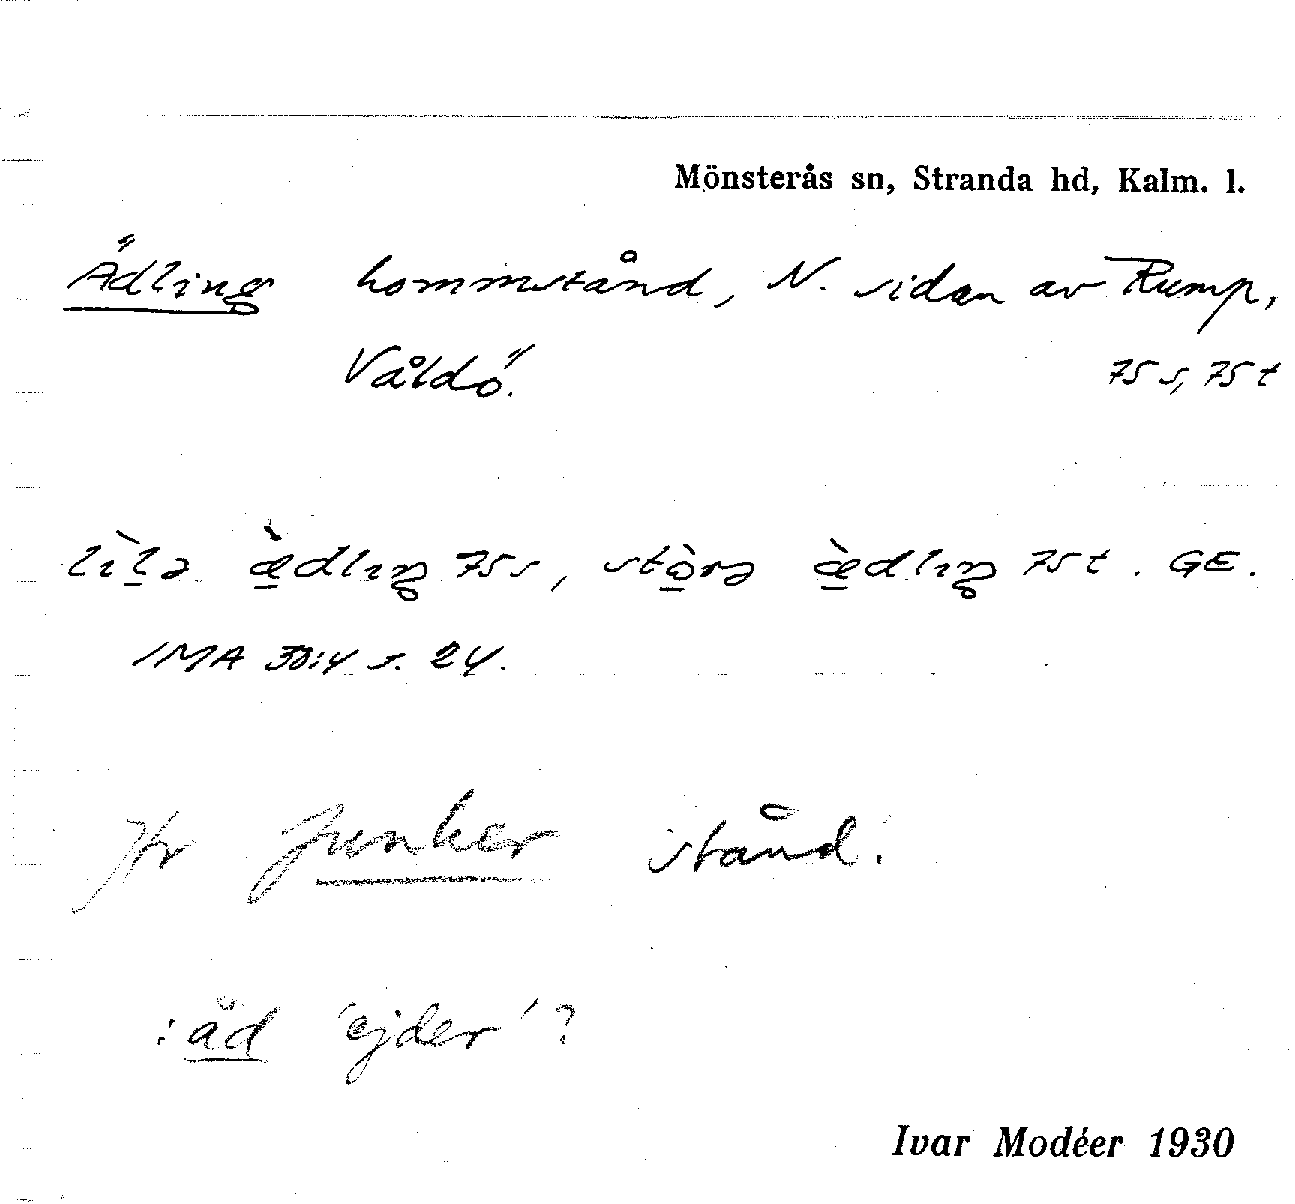 Mönsterås sn, Stranda hd, Kalm. l.
Ädling hommstånd, N. sidan av Rump,
Våldö. 75 s, 75 t
lìlə ædlıŋ 75 s, stòrə ædlıŋ 75 t. GE.
IMA 30:4 s. 24.
Jfr junker stånd.
: åd 'ejder'?
Ivar Modéer 1930